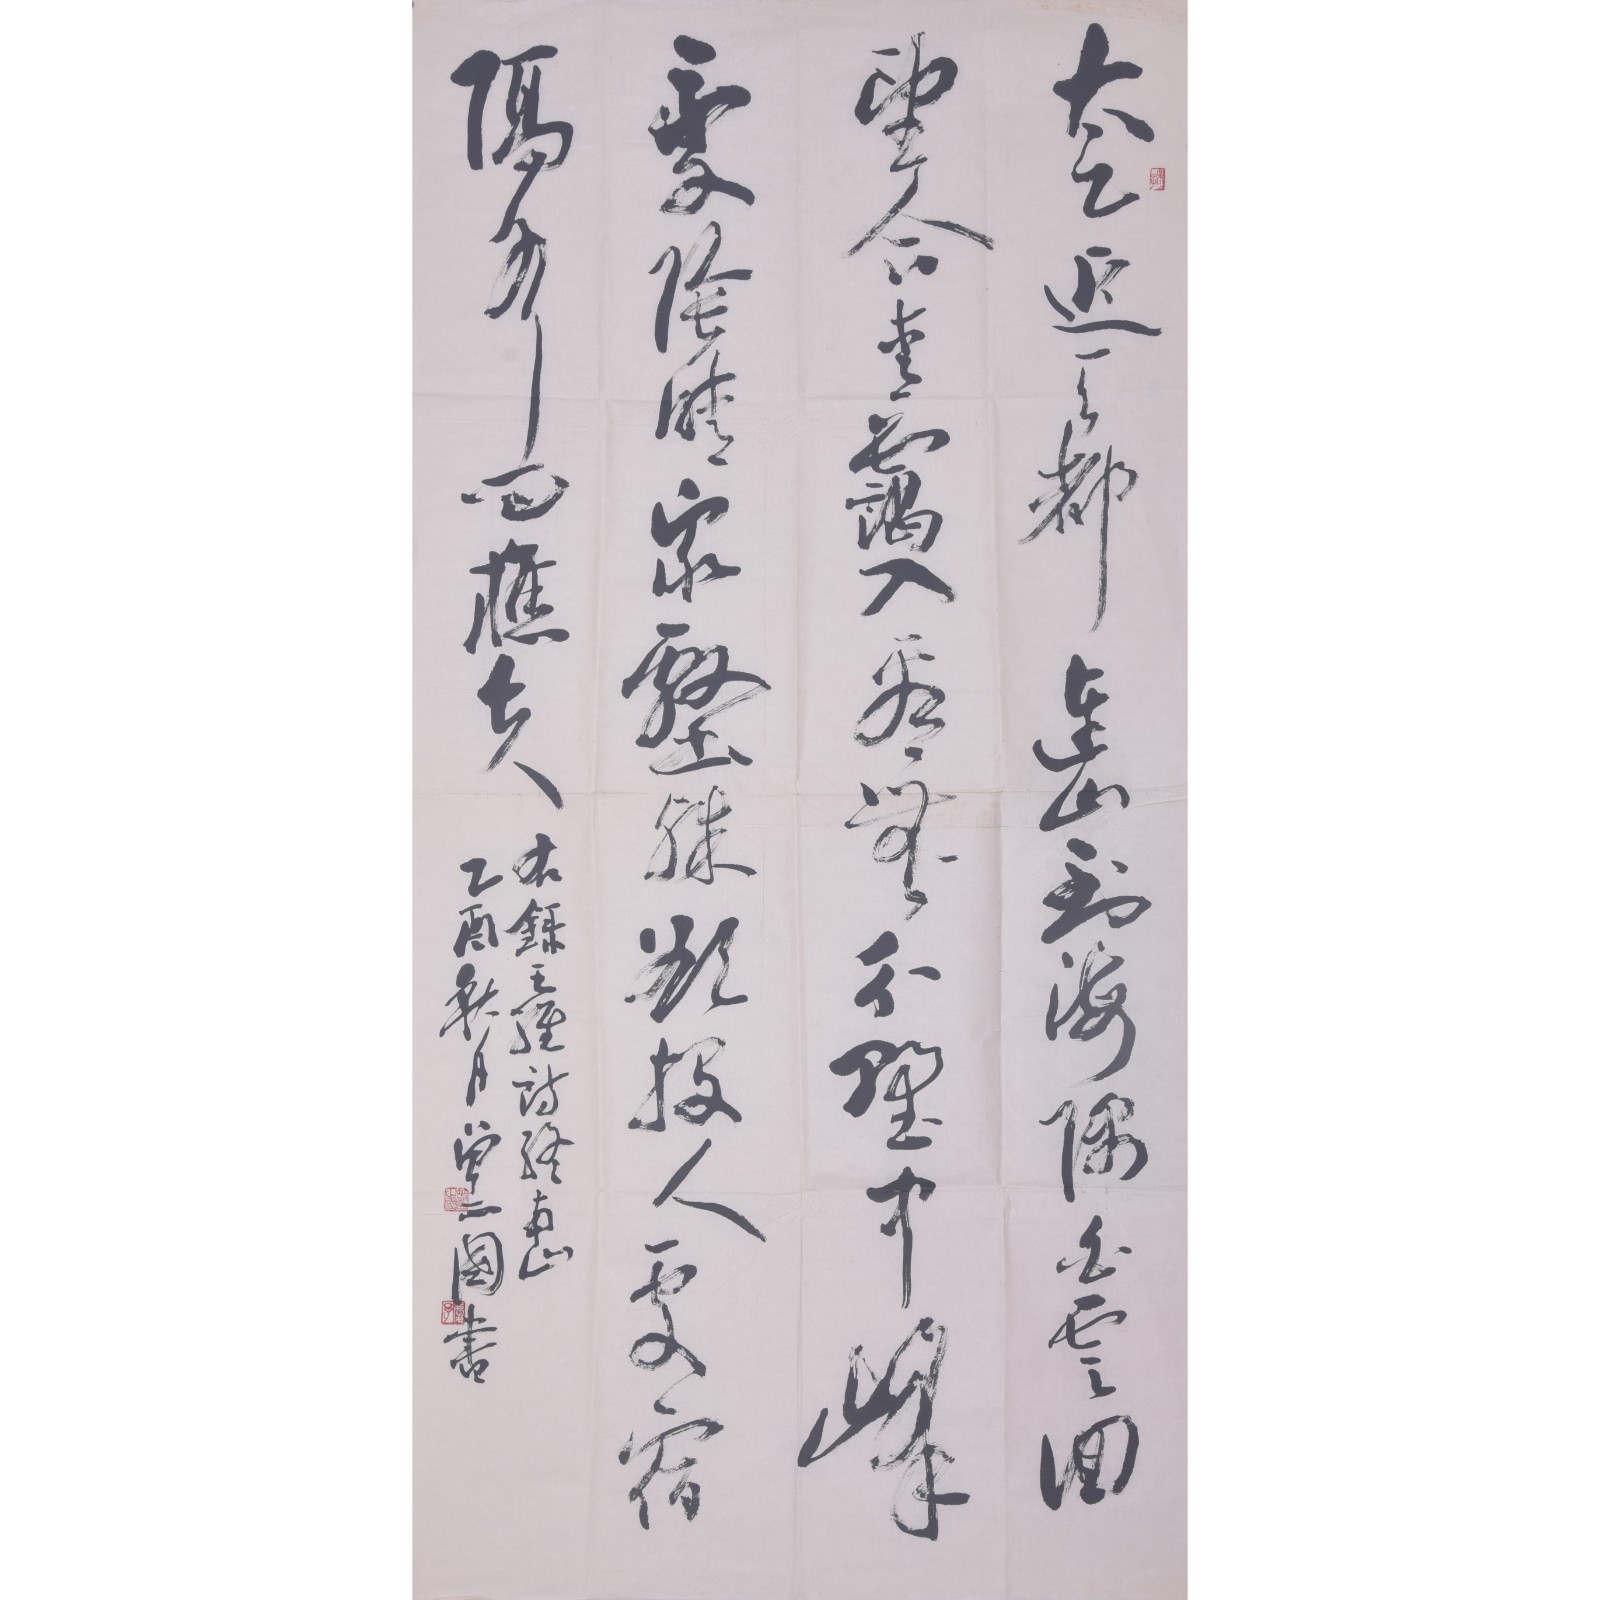 太乙近天都連山到海隅白雲回
望合青靄入看無分野中峰
變陰晴衆壑殊欲投人處宿
隔水問樵夫
右錄王維詩終南山
乙酉秋月國書